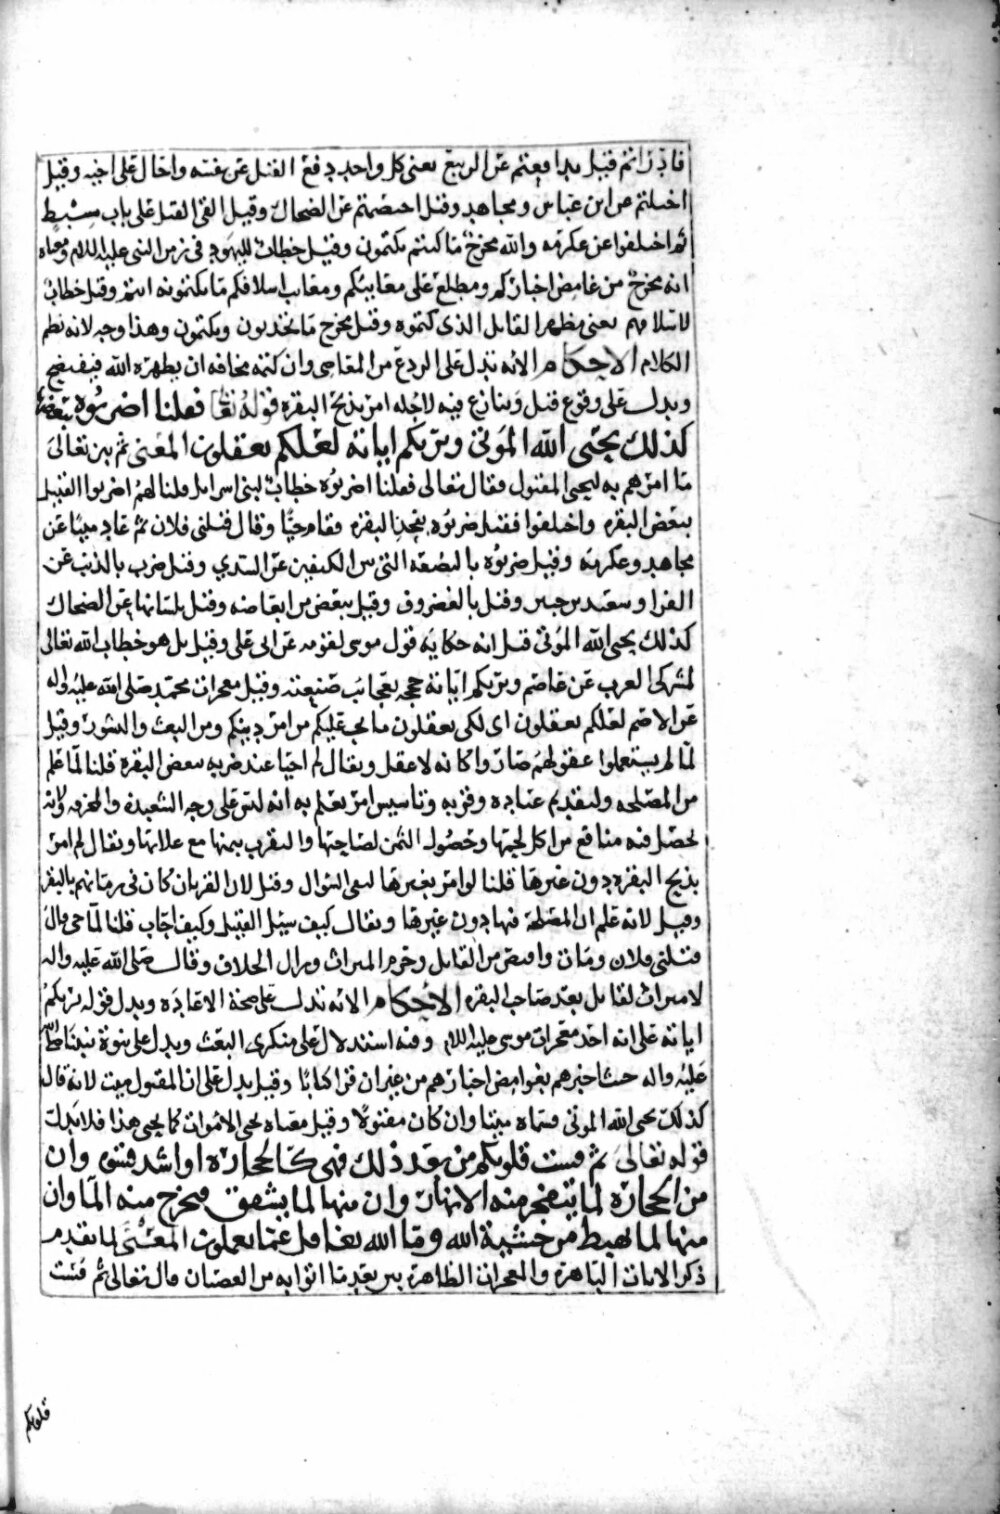 فادارأتم قيل تدافعتم عن الربيع يعني كل واحد دفع القتل عن نفسه واحال على اخيه وقيل
اختلفتم عن ابن عباس ومجاهد وقيل اختصمتم عن الضحاك وقيل القي القتل على باب سبط
ثم اختلفوا عن عكرمة والله مخرج ما كنتم تكتمون وقيل خطاب لليهود في زمن النبي عليه السلام ومعناه
انه مخرج من غامض اخباركم ومطلع على معايبكم ومعايب اسلافكم ما تكتمونه انتم وقيل خطاب
لاسلافهم يعني مظهر القاتل الذي كتموه وقيل مخرج ما تخفون وتكتمون وهذا وجه لانه نظم
الكلام الاحكام الاية تدل على الردع من المعاصي وان كتمه مخافة ان يظهره الله فيفتضح
ويدل على وقوع قتل وتنازع فيه لاجله امر بذبح البقرة قوله تعالى فقلنا اضربوه ببعضها
كذلك يحيي الله الموتى ويريكم اياته لعلكم تعقلون المعنى ثم بين تعالى
ما امرهم به ليحيى المقتول فقال تعالى فقلنا اضربوه خطاب لبني اسرائل قلنا لهم اضربوا القتيل
ببعض البقرة واختلفوا فقيل ضربوه بفخذ البقرة فقام حيا وقال قتلني فلان ثم عاد ميتا عن
مجاهد وعكرمة وقيل ضربوه بالبضعة التي بين الكتفين عن السدي وقيل ضرب بالذنب عن
الفرا وسعيد بن جبير وقيل بالغضروف وقيل ببعض من ابعاضه وقيل بلسانها عن الضحاك
كذلك يحيي الله الموتى قيل انه حكاية قول موسى لقومه عن ابي علي وقيل بل هو خطاب الله تعالى
لمشركي العرب عن عاصم ويريكم اياته حججه بعجائب صنيعته وقيل معجزات محمد صلى الله عليه واله
عن الاصم لعلكم تعقلون اي لكي تعقلون ما يجب عليكم من امر دينكم ومن البعث والنشور وقيل
لما لم يستعملوا عقولهم صاروا كانه لا عقل ويقال لم احيا عند ضربه ببعض البقرة قلنا لما علم
من المصلحة ولتقديم عبادة وقربة وتاسيس امر يعلم به انه ليس على وجه الشعبذة والمخرقة ولانه
تحصل فيه منافع من اكل لحمها وحصول الثمن لصاحبها والتقرب بثمنها مع علائها ويقال لم امر
بذبح البقرة دون غيرها قلنا لو امر بغيرها لبقي السؤال وقيل لان القربان كان في زمانهم بالبقر
وقيل لانه علم ان المصلحة فيها دون غيرها ويقال كيف سئل القتيل وكيف اجاب قلنا لما حي قال
قتلني فلان ومات واقتص من القاتل وحرم الميراث وزال الخلاف وقال صلى الله عليه واله
لا ميراث لقاتل بعد صاحب البقرة الاحكام الاية تدل على صحة الاعادة ويدل قوله يريكم
اياته على انه احد معجزات موسى عليه السلام وفيه استدلال على منكري البعث ويدل على نبوة نبينا صلى الله
عليه واله حيث اخبرهم بغوامض اخبارهم من غير ان قرا كتابا وقيل يدل على ان المقتول ميت لانه قال
كذلك يحيي الله الموتى فسماه ميتا وان كان مقتولا وقيل معناه يحيي الاموات كما يحيي هذا فلا يدل
قوله تعالى ثم قست قلوبكم من بعد ذلك فهي كالحجارة او اشد قسوة وان
من الحجارة لما يتفجر منه الانهار وان منها لما يشقق فيخرج منه الما وان
منها لما يهبط من خشية الله وما الله بغافل عما تعملون المعنى لما تقدم
ذكر الايات الباهرة والمعجزات الظاهرة بين بعد ما اتوا به من العصيان قال تعالى ثم قست
قلوبكم